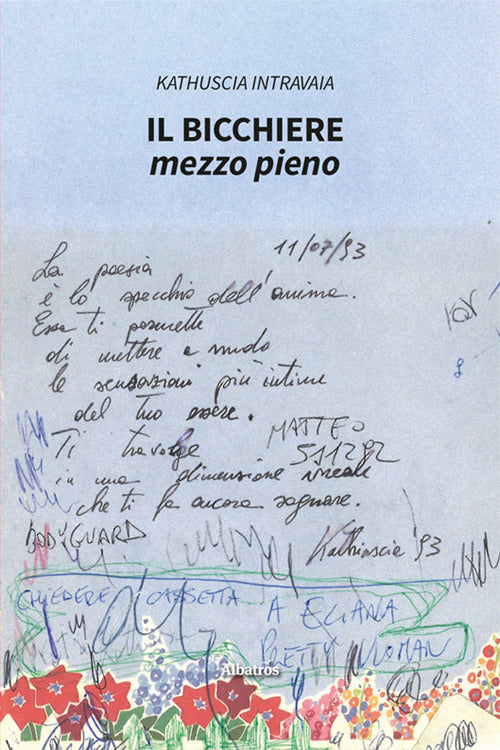 KATHUSCIA INTRAVAIA
IL BICCHIERE
mezzo pieno
11/07/93
La poesia
è lo specchio dell'anima.
Essa ti permette
di mettere a nudo
le sensazioni più intime
del tuo essere.
MATTEO
Ti travolge
511292
in una dimensione irreale
che ti fa ancora sognare.
BODYGUARD
Kathiuscia '93
CHIEDERE CASSETTA A ELIANA
PRETTY WOMAN
Albatros